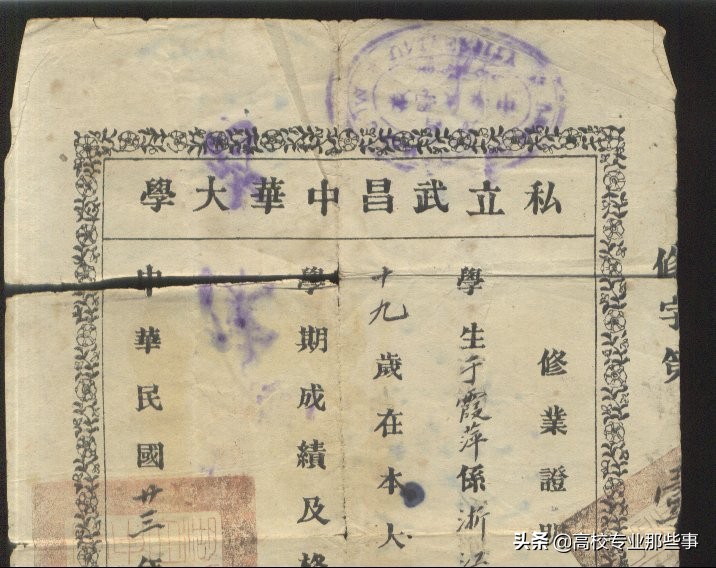 私立武昌中華大學
修業證
學生于霞萍係浙江
十九歲在本大
學期成績及格
中華民國廿三年
修字第
壹
头条 @高校专业那些事